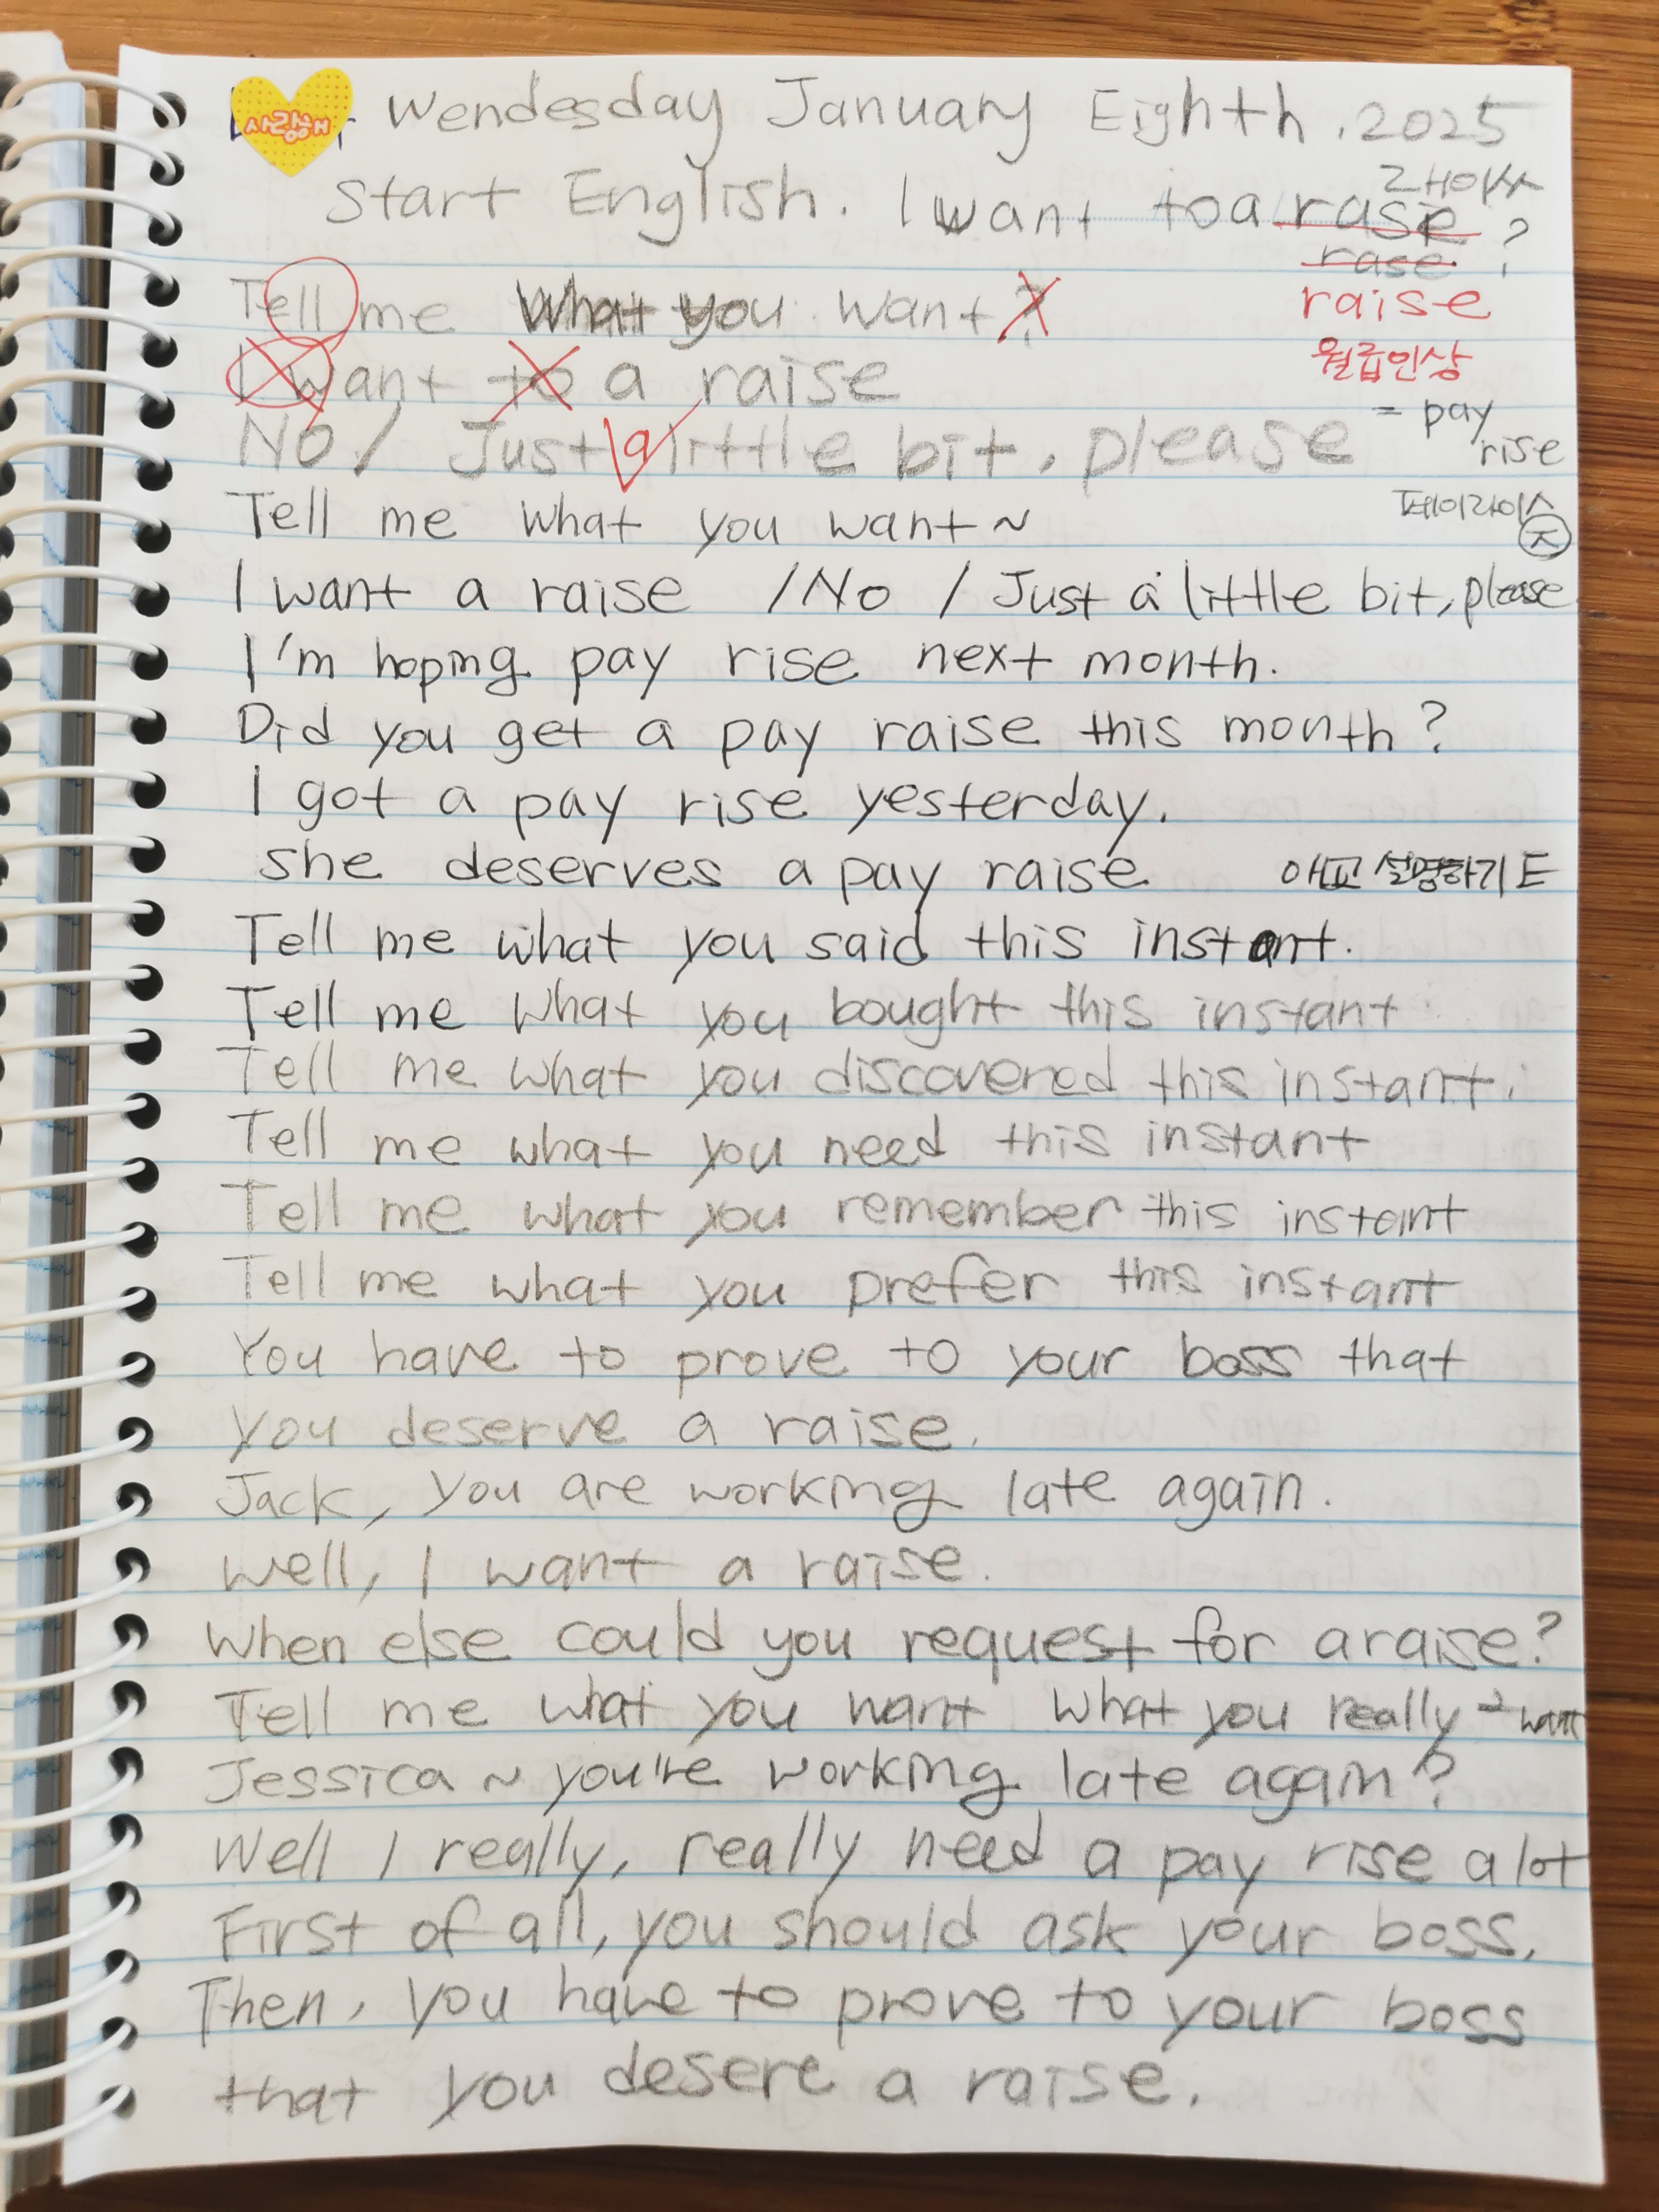 사랑해 Wendesday January Eighth. 2025
Start English. I want to a rase ?
rase
raise
월급인상
= pay
rise
Tell me What you want?
I want to a raise
No / Just a little bit, please
Tell me what you want~
페이라이스
즈
I want a raise / No / Just a little bit, please
I'm hoping pay rise next month.
Did you get a pay raise this month?
I got a pay rise yesterday.
she deserves a pay raise 애교 설명하기 E
Tell me what you said this instant.
Tell me what you bought this instant
Tell me what you discovered this instant.
Tell me what you need this instant
Tell me what you remember this instant
Tell me what you prefer this instant
You have to prove to your boss that
you deserve a raise.
Jack, you are working late again.
Well, I want a raise.
When else could you request for a raise?
Tell me what you want what you really 2 want
Jessica ~ you're working late again?
Well I really, really need a pay rise a lot
First of all, you should ask your boss,
Then, you have to prove to your boss
that you desere a raise.